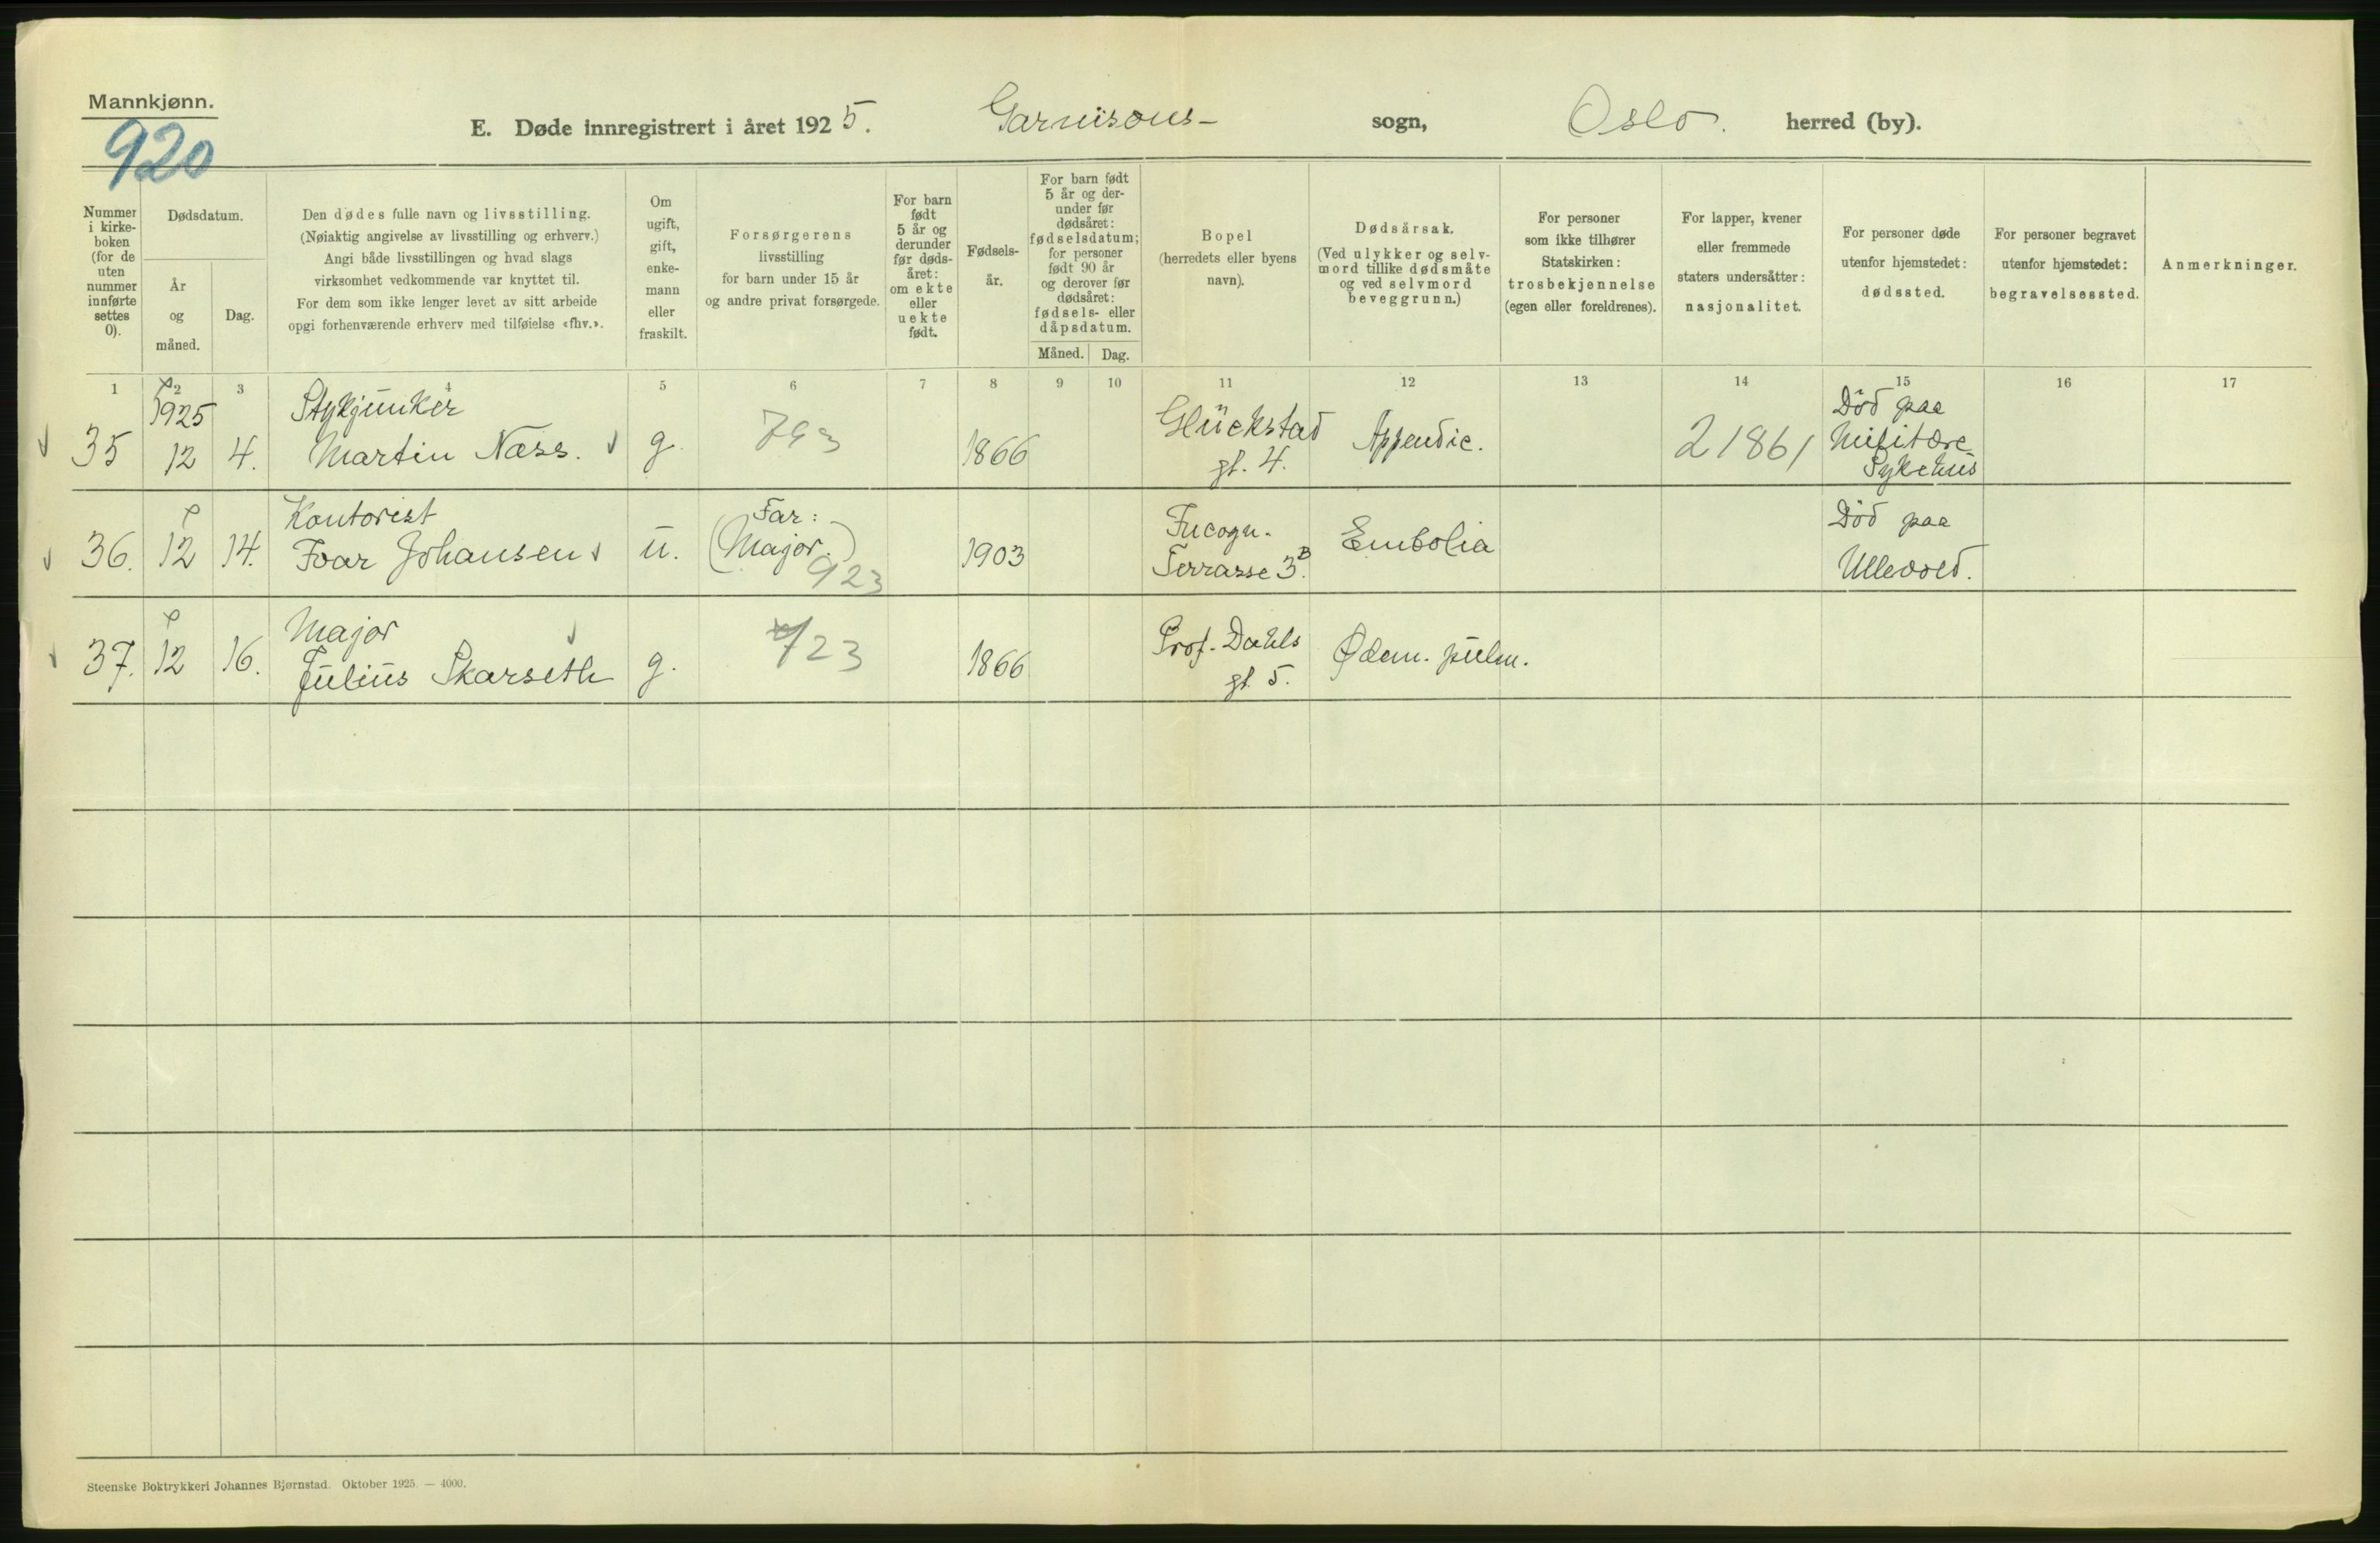 Mannkjønn.
920
E. Døde innregistrert i året 1925. Garnisons- sogn, Oslo. herred (by).
Nummer i kirke- boken (for de uten nummer innførte settes 0).
Dødsdatum.
År og måned.
Dag.
Den dødes fulle navn og livsstilling.
(Nøiaktig angivelse av livsstilling og erhverv.)
Angi både livsstillingen og hvad slags
virksomhet vedkommende var knyttet til.
For dem som ikke lenger levet av sitt arbeide
opgi forhenværende erhverv med tilføielse «fhv.».
Om ugift, gift, enke- mann eller fraskilt.
Forsørgerens
livsstilling
for barn under 15 år
og andre privat forsørgede.
For barn født 5 år og derunder før døds- året: om ekte eller uekte født.
Fødsels- år.
For barn født 5 år og der- under før dødsåret: fødselsdatum; for personer født 90 år og derover før dødsåret: fødsels- eller dåpsdatum.
Måned. Dag.
Bopel
(herredets eller byens
navn).
Dødsårsak.
(Ved ulykker og selv-
mord tillike dødsmåte
og ved selvmord
beveggrunn.)
For personer
som ikke tilhører
Statskirken:
trosbekjennelse
(egen eller foreldrenes).
For lapper, kvener
eller fremmede
staters undersåtter:
nasjonalitet.
For personer døde
utenfor hjemstedet:
dødssted.
For personer begravet
utenfor hjemstedet:
begravelsessted.
Anmerkninger.
1 2 3 4 5 6 7 8 9 10 11 12 13 14 15 16 17
35 1925 12 4. Stykjunker
Martin Næss. g. 793 1866 Glückstad
gt. 4. Appendic. 21861 Död paa
Militære
Sykehus
36. 12 14. Kontorist
Ivar Johansen u. Far:
(Major.)
923 1903 Incogn.
Terrasse 3B. Embolia Död paa
Ullevold.
37. 12 16. Major
Julius Skarseth g. 723 1866 Prof. Dahls
gt. 5. Ødem. pulm.
Steenske Boktrykkeri Johannes Bjørnstad. Oktober 1925. — 4000.